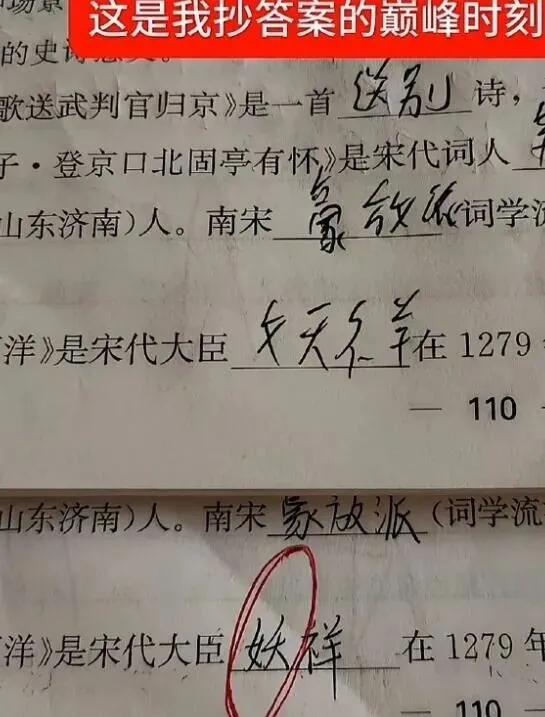 这是我抄答案的巅峰时刻
的史诗
歌送武判官归京》是一首送别诗，
子·登京口北固亭有怀》是宋代词人
山东济南)人。南宋豪放派词学流
洋》是宋代大臣文天祥在 1279
— 110 —
山东济南)人。南宋家放派(词学流
洋》是宋代大臣妖祥在 1279 年
— 110 —